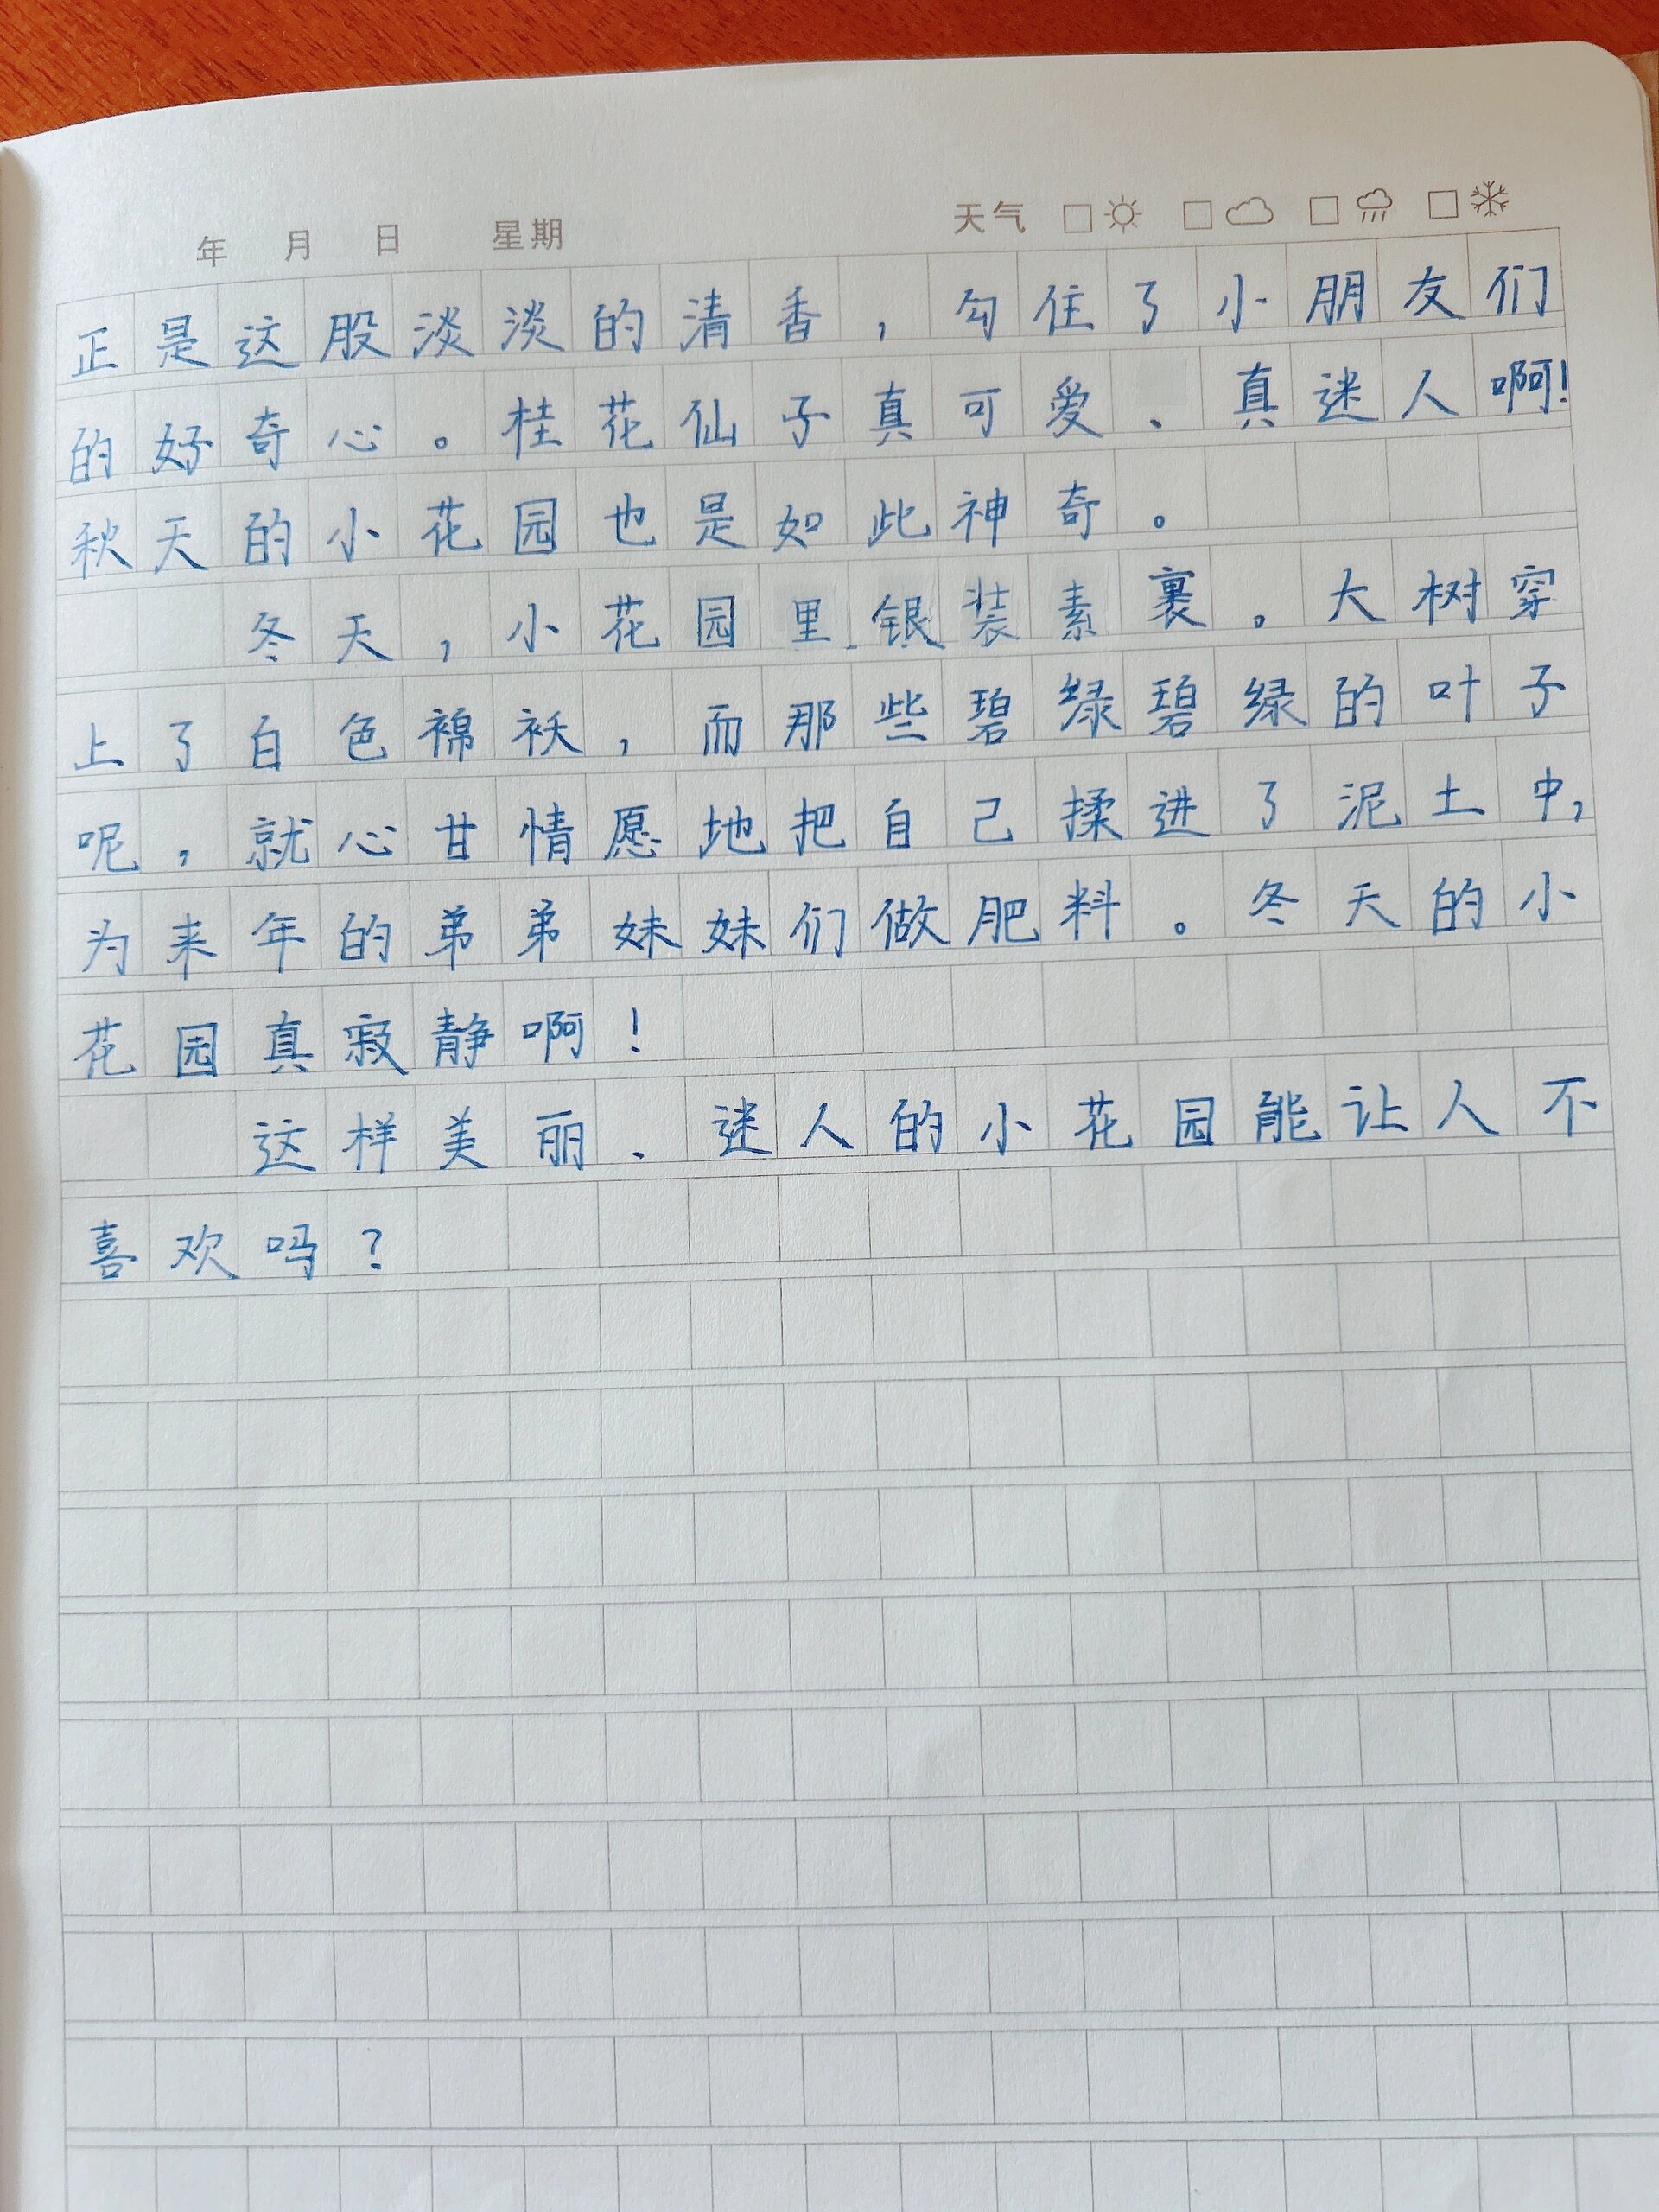 年 月 日 星期 天气
正是这股淡淡的清香，勾住了小朋友们
的好奇心。桂花仙子真可爱、真迷人啊!
秋天的小花园也是如此神奇。
冬天，小花园里银装素裹。大树穿
上了白色棉袄，而那些碧绿碧绿的叶子
呢，就心甘情愿地把自己揉进了泥土中，
为来年的弟弟妹妹们做肥料。冬天的小
花园真寂静啊！
这样美丽、迷人的小花园能让人不
喜欢吗？